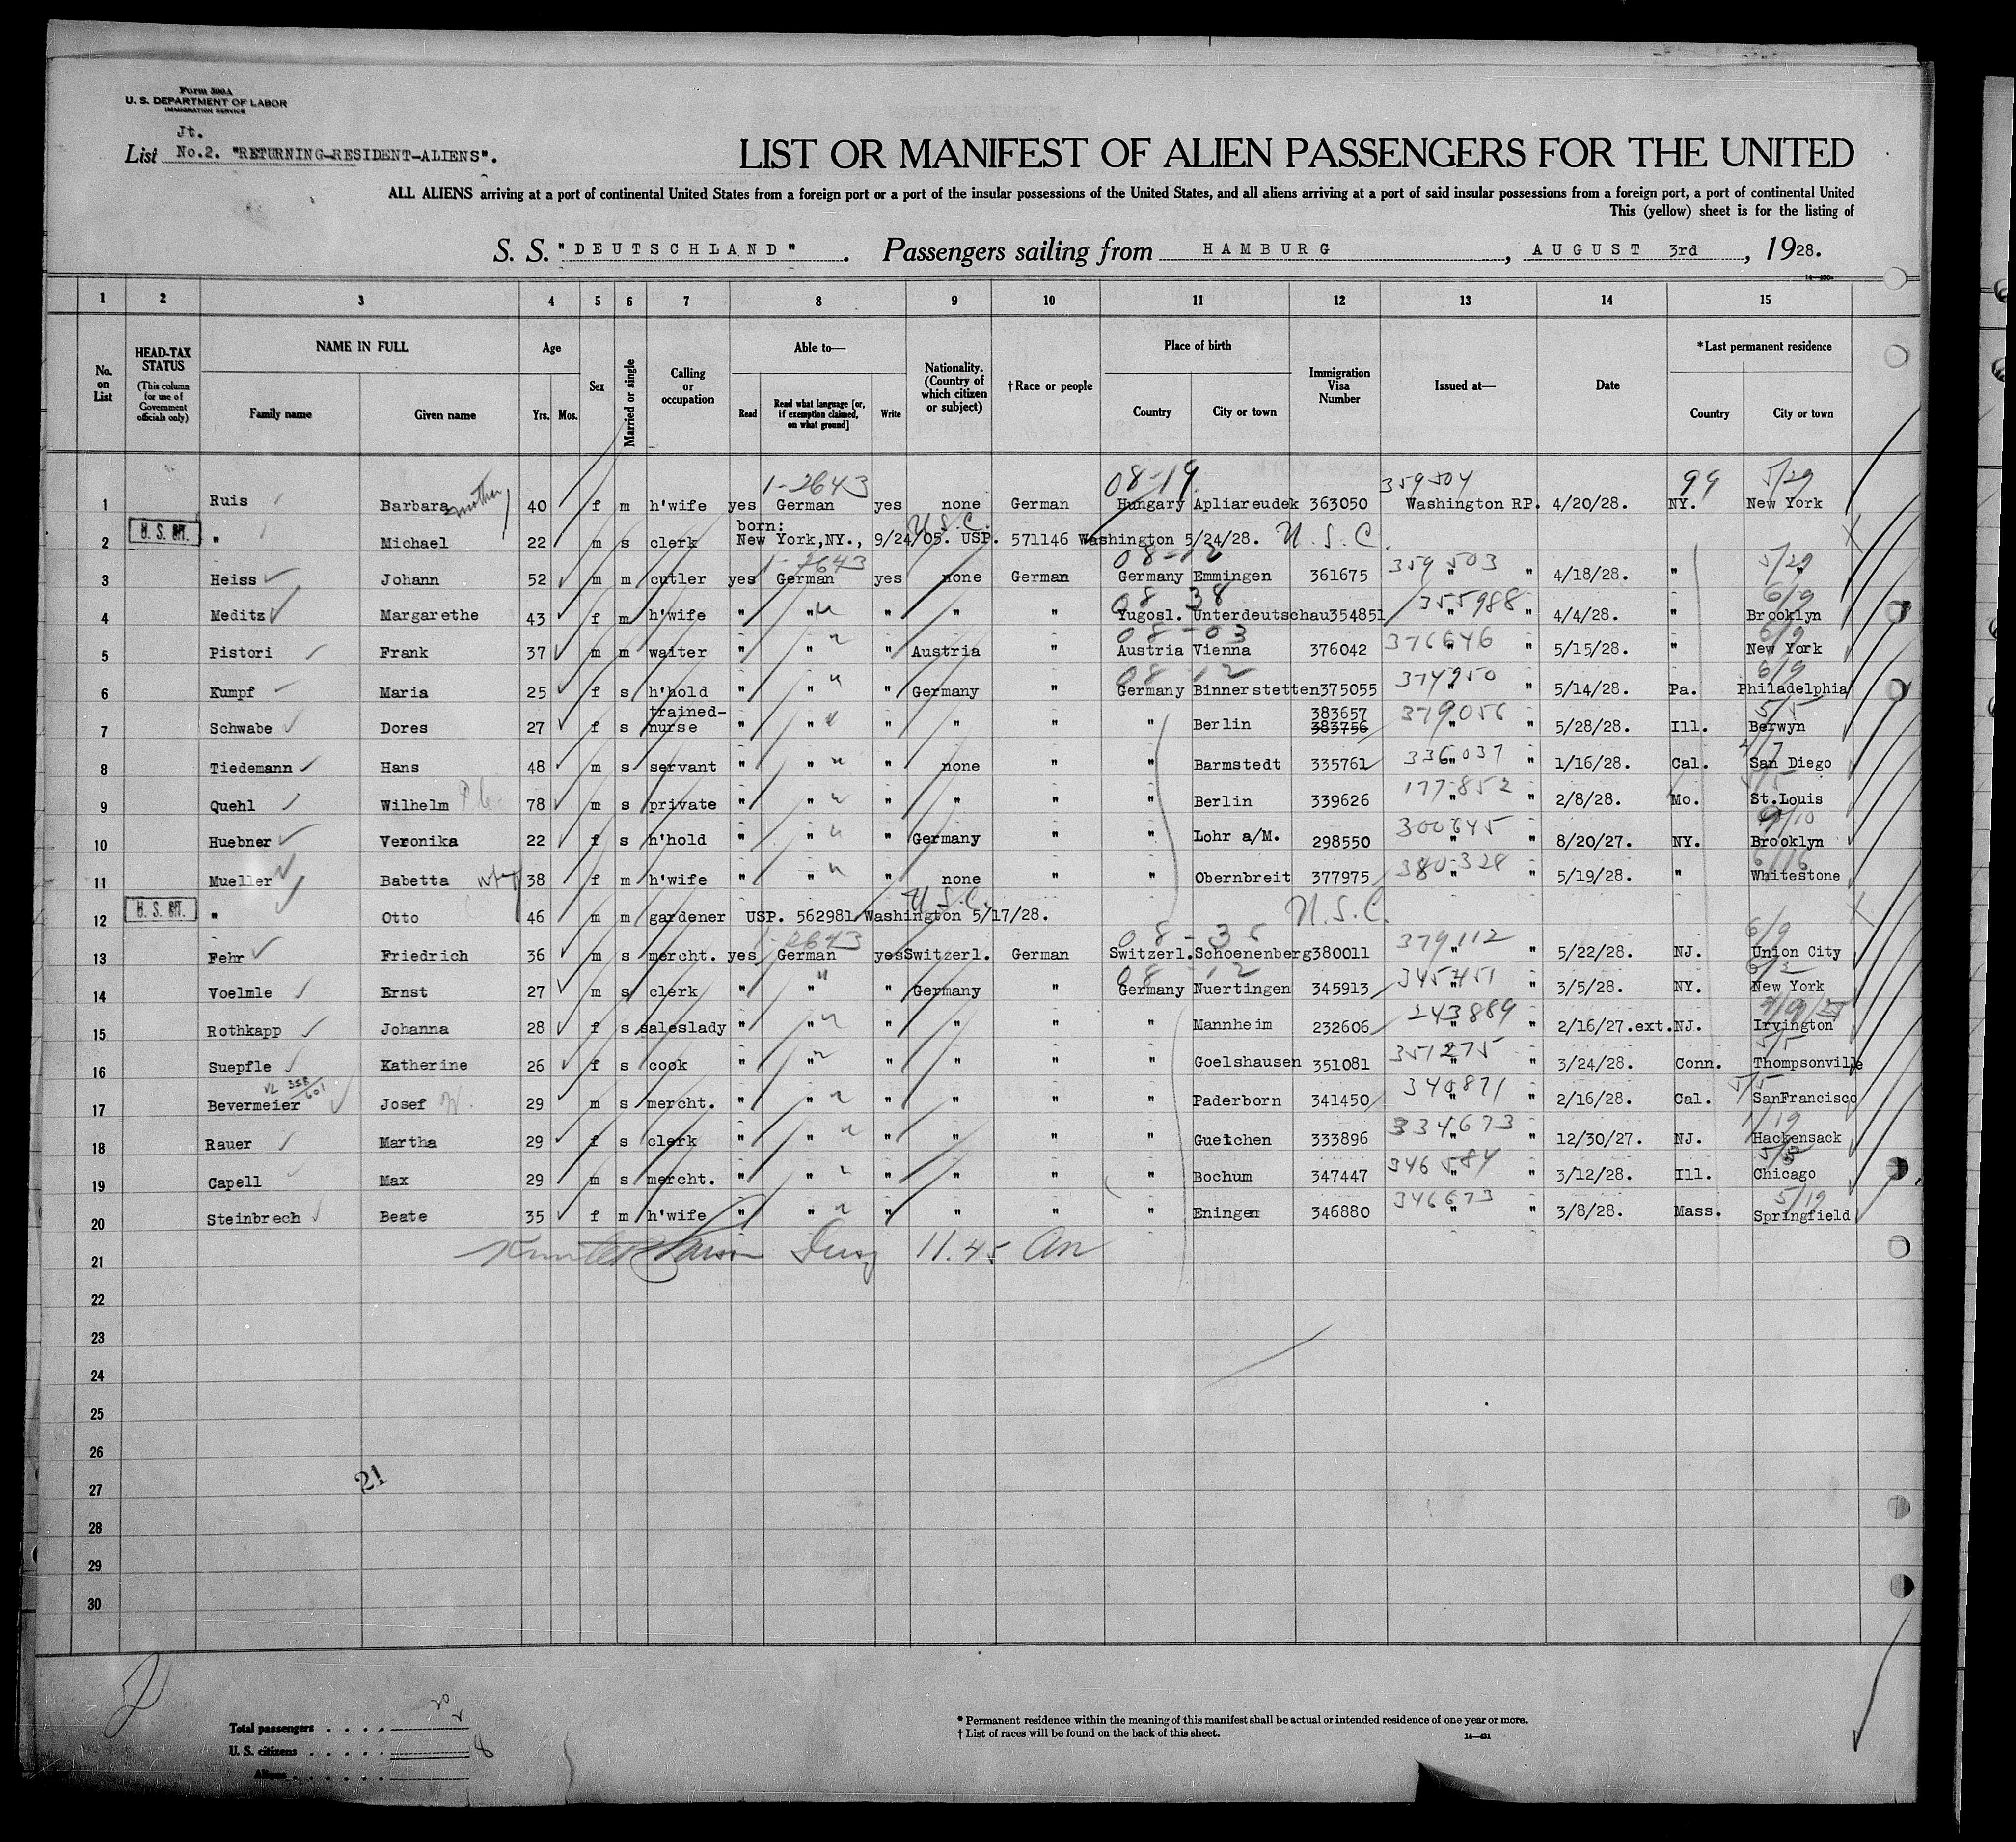 Form 500A
U. S. DEPARTMENT OF LABOR
IMMIGRATION SERVICE
Jt.
List No.2. "RETURNING-RESIDENT-ALIENS".
LIST OR MANIFEST OF ALIEN PASSENGERS FOR THE UNITED
ALL ALIENS arriving at a port of continental United States from a foreign port or a port of the insular possessions of the United States, and all aliens arriving at a port of said insular possessions from a foreign port, a port of continental United
This (yellow) sheet is for the listing of
S. S. "DEUTSCHLAND". Passengers sailing from HAMBURG, AUGUST 3rd, 1928.
1 2 3 4 5 6 7 8 9 10 11 12 13 14 15
No. on List
HEAD-TAX STATUS (This column for use of Government officials only)
NAME IN FULL
Family name Given name
Age
Yrs. Mos.
Sex
Married or single
Calling or occupation
Able to—
Read Read what language [or, if exemption claimed, on what ground] Write
Nationality. (Country of which citizen or subject)
†Race or people
Place of birth
Country City or town
Immigration Visa Number
Issued at—
Date
*Last permanent residence
Country City or town
1-2643 08-19 359504 99 5/29
1 Ruis Barbara mother 40 f m h'wife yes German yes none German Hungary Apliareudek 363050 Washington RP. 4/20/28. NY. New York
U.S.C.
2 " Michael 22 m s clerk born: New York,NY., 9/24/05. USP. 571146 Washington 5/24/28. U.S.C.
1-2643 08-12 359503 5/29
3 Heiss Johann 52 m m cutler yes German yes none German Germany Emmingen 361675 " " 4/18/28. " "
08 38 355988 6/9
4 Meditz Margarethe 43 f m h'wife " " " " " Yugosl. Unterdeutschau 354851 " " 4/4/28. " Brooklyn
08-03 376646 6/9
5 Pistori Frank 37 m m waiter " " " Austria " Austria Vienna 376042 " " 5/15/28. " New York
08 12 374950 6/9
6 Kumpf Maria 25 f s h'hold " " " Germany " Germany Binnerstetten 375055 " " 5/14/28. Pa. Philadelphia
379056 5/5
7 Schwabe Dores 27 f s trained-nurse " " " " " " Berlin 383657 383756 " " 5/28/28. Ill. Berwyn
336037
8 Tiedemann Hans 48 m s servant " " " none " " Barmstedt 335761 " " 1/16/28. Cal. San Diego
177852
9 Quehl Wilhelm 78 m s private " " " " " " Berlin 339626 " " 2/8/28. Mo. St.Louis
300645
10 Huebner Veronika 22 f s h'hold " " " Germany " " Lohr a/M. 298550 " " 8/20/27. NY. Brooklyn
380328 6/16
11 Mueller Babetta 38 f m h'wife " " " none " " Obernbreit 377975 " " 5/19/28. " Whitestone
U.S.C.
12 " Otto 46 m m gardener USP. 562981 Washington 5/17/28. U.S.C.
1-2643 08-35 379112 6/9
13 Fehr Friedrich 36 m s mercht. yes German yes Switzerl. German Switzerl. Schoenenberg 380011 " " 5/22/28. NJ. Union City
08-12 345451 6/2
14 Voelmle Ernst 27 m s clerk " " " Germany " Germany Nuertingen 345913 " " 3/5/28. NY. New York
243889
15 Rothkapp Johanna 28 f s saleslady " " " " " " Mannheim 232606 " " 2/16/27.ext. NJ. Irvington
351275 5/5
16 Suepfle Katherine 26 f s cook " " " " " " Goelshausen 351081 " " 3/24/28. Conn. Thompsonville
340871 5/5
17 Bevermeier Josef 29 m s mercht. " " " " " " Paderborn 341450 " " 2/16/28. Cal. SanFrancisco
334673 1/19
18 Rauer Martha 29 f s clerk " " " " " " Guetchen 333896 " " 12/30/27. NJ. Hackensack
346584
19 Capell Max 29 m s mercht. " " " " " " Bochum 347447 " " 3/12/28. Ill. Chicago
346673 5/19
20 Steinbrech Beate 35 f m h'wife " " " " " " Eningen 346880 " " 3/8/28. Mass. Springfield
21 11.45 am
22
23
24
25
26
27
28
29
30
21
Total passengers 20
U. S. citizens
Aliens
* Permanent residence within the meaning of this manifest shall be actual or intended residence of one year or more.
† List of races will be found on the back of this sheet.
14—431